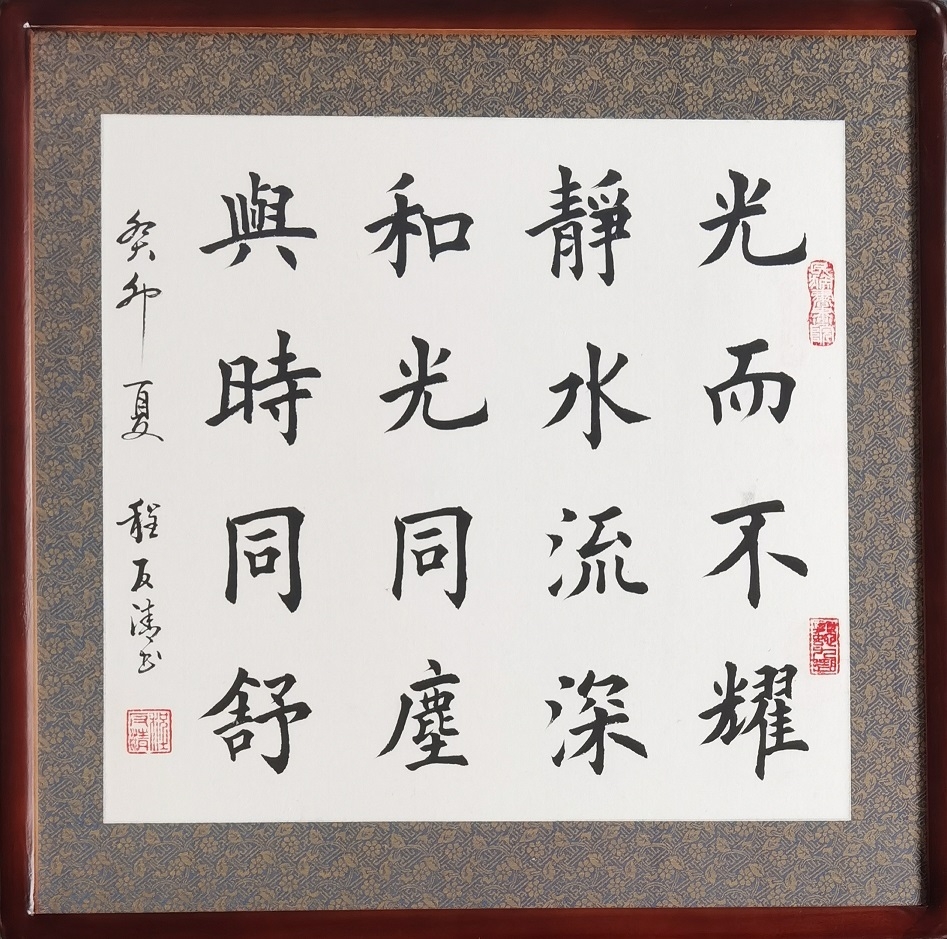 光而不耀
靜水流深
和光同塵
與時同舒
癸卯夏 程友清书